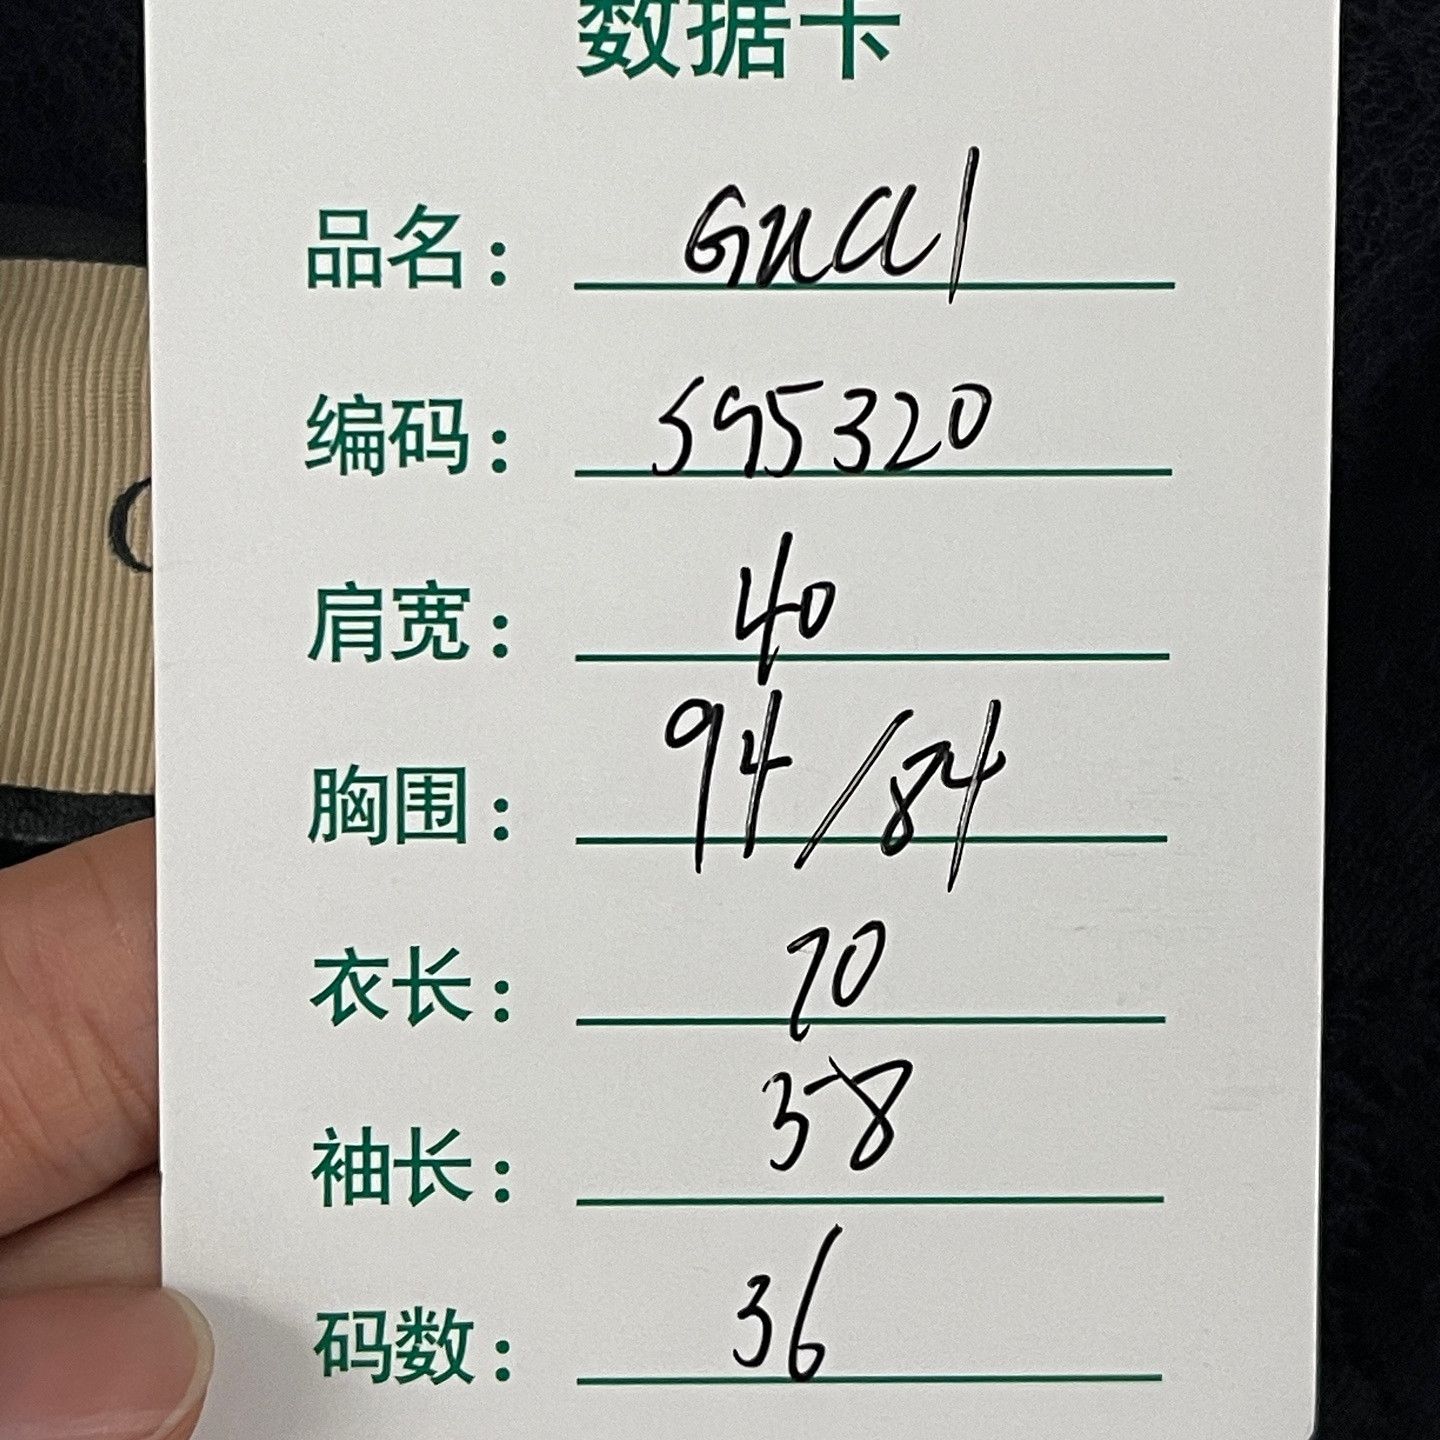 数据卡
品名: Gucci
编码: 595320
肩宽: 40
胸围: 94/84
衣长: 70
袖长: 58
码数: 36